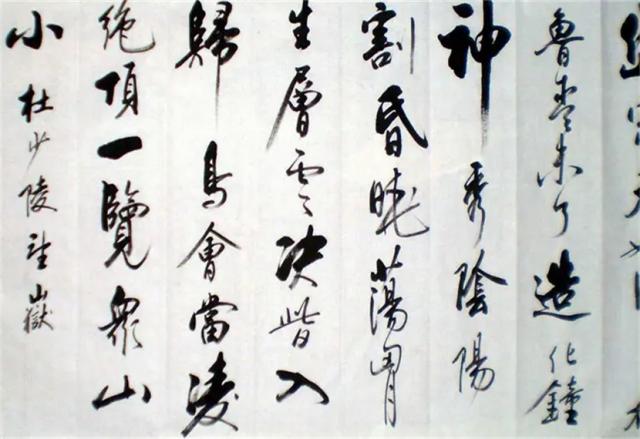 魯青未了造化鐘
神秀陰陽
割昏曉蕩胷
生層雲决眥入
歸鳥會當凌
絶頂一覽眾山
小 杜少陵望嶽